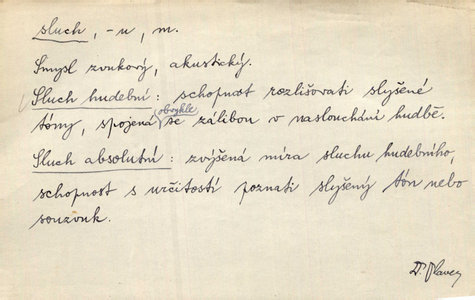 sluch, -u, m.
Smysl zvukový, akustický.
Sluch hudební: schopnost rozlišovati slyšené
tóny, spojená obvykle se zálibou v naslouchání hudbě.
Sluch absolutní: zvýšená míra sluchu hudebního,
schopnost s určitostí poznati slyšený tón nebo
souzvuk.